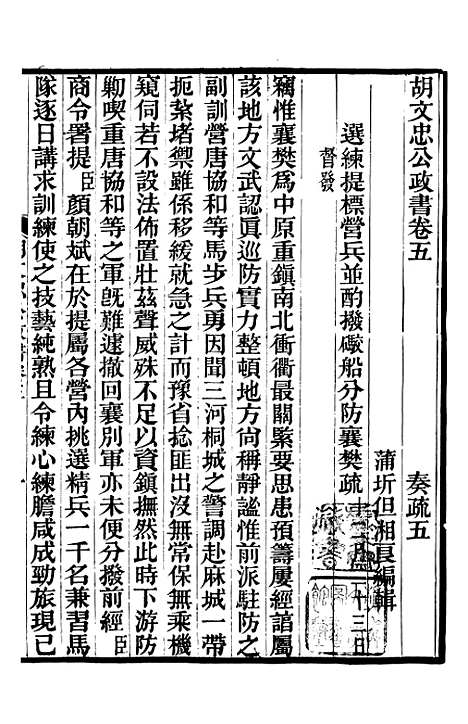 胡文忠公政書卷五　奏疏五
蒲圻但湘良編輯
選練提標營兵並酌撥礮船分防襄樊疏
十三日
督發
竊惟襄樊爲中原重鎮南北衝衢最關緊要思患預籌屢經諳屬
該地方文武認眞巡防實力整頓地方尙稱靜謐惟前派駐防之
副訓營唐協和等馬步兵勇因聞三河桐城之警調赴麻城一帶
扼紮堵禦雖係移緩就急之計而豫省捻匪出沒無常保無乘機
窺伺若不設法佈置壯茲聲威殊不足以資鎮撫然此時下游防
勦喫重唐協和等之軍旣難遽撤回襄別軍亦未便分撥前經臣
商令署提臣顏朝斌在於提屬各營內挑選精兵一千名兼習馬
隊逐日講求訓練使之技藝純熟且令練心練膽咸成勁旅現已